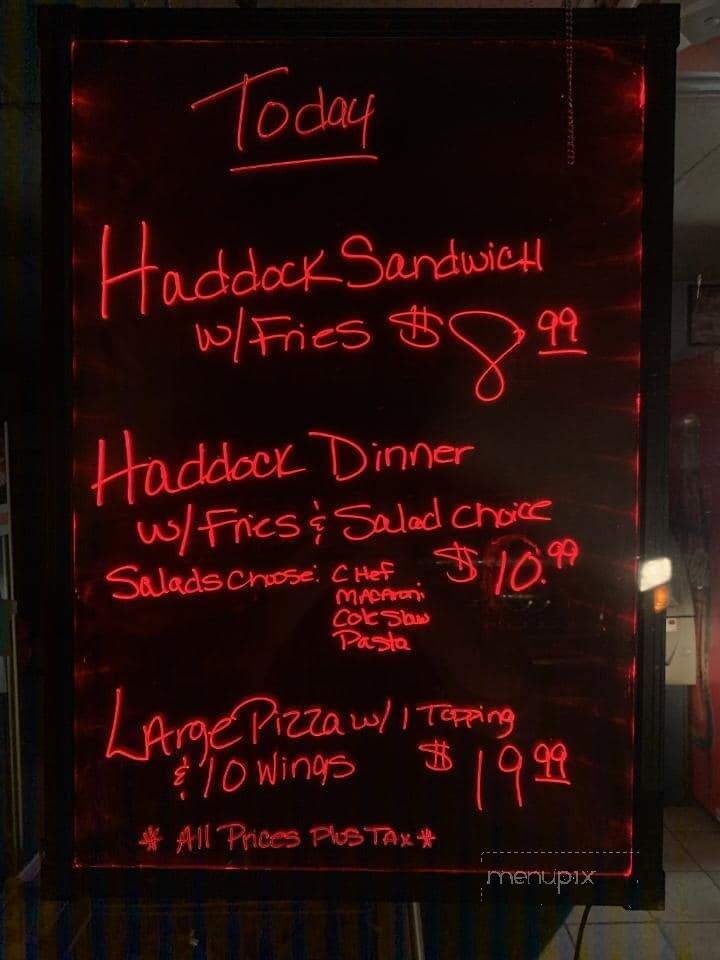 Today
Haddock Sandwich
w/Fries $8.99
Haddock Dinner
w/Fries & Salad choice
Salads choose: CHeF $10.99
MACAroni
Cole Slaw
Pasta
LArge Pizza w/ 1 Topping
& 10 Wings $19.99
* All Prices Plus TAx *
menupix